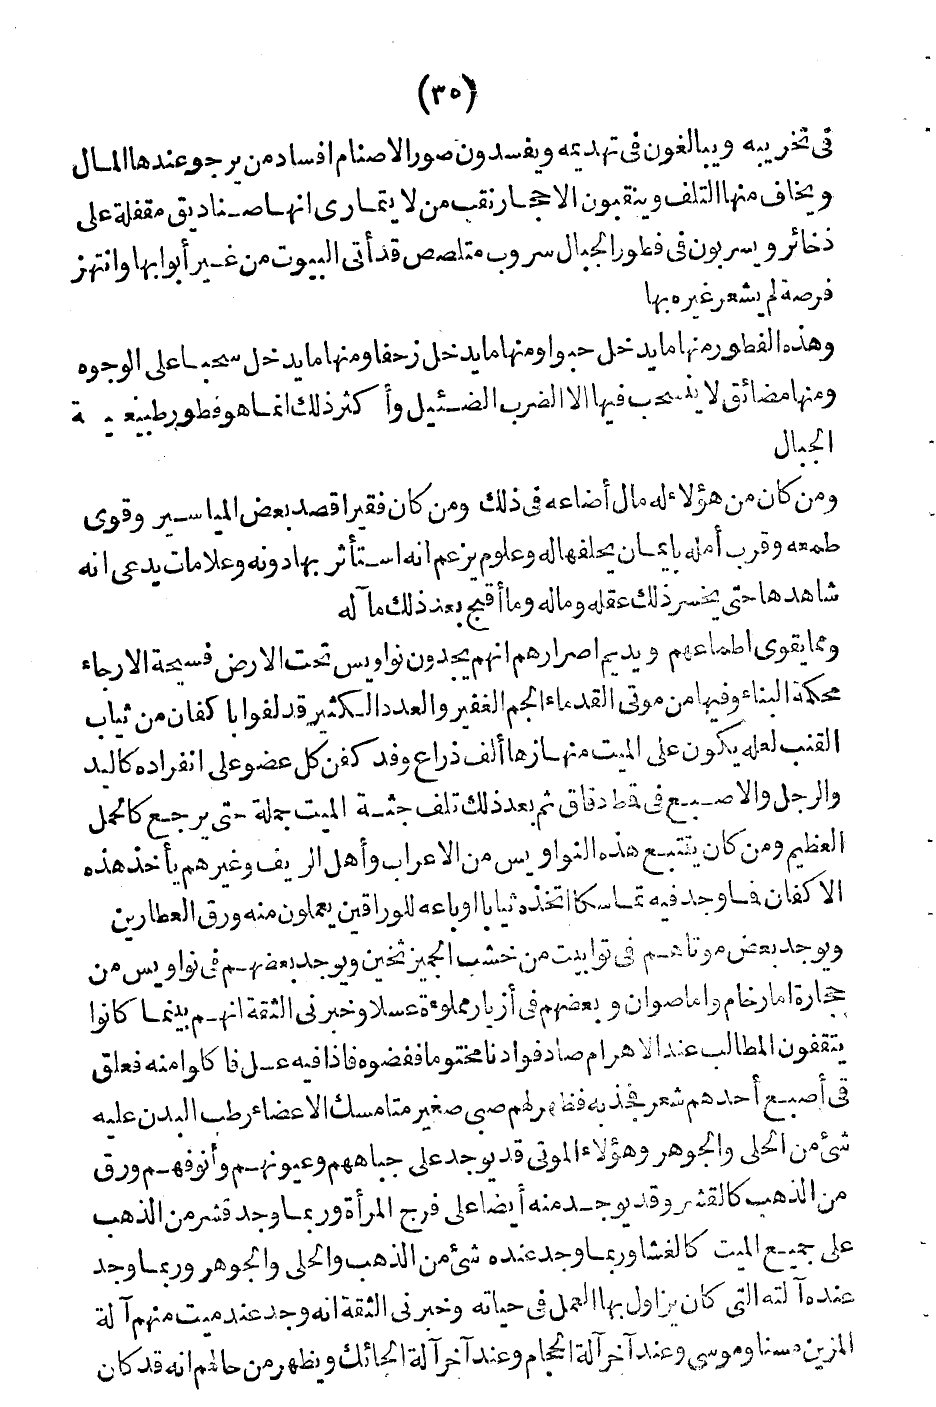 (٣٥)
فى تخريبه ويبالغون فى تهديمه ويفسدون صور الاصنام افساد من يرجو عندها المال
ويخاف منها التلف وينقبون الاحجار نقب من لا يتمارى انها صناديق مقفلة على
ذخائر ويسربون فى فطور الجبال سروب متلصص قد أتى البيوت من غير أبوابها وانتهز
فرصة لم يشعر غيره بها
وهذه الفطور منها ما يدخل حبوا ومنها ما يدخل زحفا ومنها ما يدخل سحبا على الوجوه
ومنها مضائق لا ينسحب فيها الا الضرب الضئيل وأكثر ذلك انما هو فطور طبيعية
الجبال
ومن كان من هؤلاء له مال أضاعه فى ذلك ومن كان فقيرا قصد بعض المياسير وقوى
طمعه وقرب أمله بايمان يحلفها له وعلوم يزعم انه استأثر بها دونه وعلامات يدعى انه
شاهدها حتى يخسر ذلك عقله وماله وما أقبح بعد ذلك مآله
ومما يقوى اطماعهم ويديم اصرارهم انهم يجدون نواويس تحت الارض فسيحة الارجاء
محكمة البناء وفيها من موتى القدماء الجم الغفير والعدد الكثير قد لفوا با كفان من ثياب
القنب لعله يكون على الميت منها زهاء ألف ذراع وقد كفن كل عضو على انفراده كاليد
والرجل والاصبع فى قط دقاق ثم بعد ذلك تلف جثة الميت جملة حتى يرجع كالحمل
العظيم ومن كان يتتبع هذه النواويس من الاعراب وأهل الريف وغيرهم يأخذ هذه
الا كفان فما وجد فيه تماسكا اتخذه ثيابا او باعه للوراقين يعملون منه ورق العطارين
ويوجد بعض موتاهم فى توابيت من خشب الجميز ثخين ويوجد بعضهم فى نواويس من
حجارة اما رخام واما صوان وبعضهم فى أزيار مملوءة عسلا وخبرنى الثقة انهم بينما كانوا
يتقفون المطالب عند الاهرام صادفوا دنا مختوما ففضوه فاذا فيه عسل فاكلوا منه فعلق
فى أصبع أحدهم شعر فجذبه فظهر لهم صبى صغير متماسك الاعضاء رطب البدن عليه
شئ من الحلى والجوهر وهؤلاء الموتى قد يوجد على جباههم وعيونهم وأنوفهم ورق
من الذهب كالقشر وقد يوجد منه أيضا على فرج المرأة وربما وجد قشر من الذهب
على جميع الميت كالغشا وربما وجد عنده شئ من الذهب والحلى والجوهر وربما وجد
عنده آلته التى كان يزاول بها العمل فى حياته وخبرنى الثقة انه وجد عند ميت منهم آلة
المزين مسنا وموسى وعند آخر آلة الحجام وعند آخر آلة الحائك ويظهر من حالهم انه قد كان